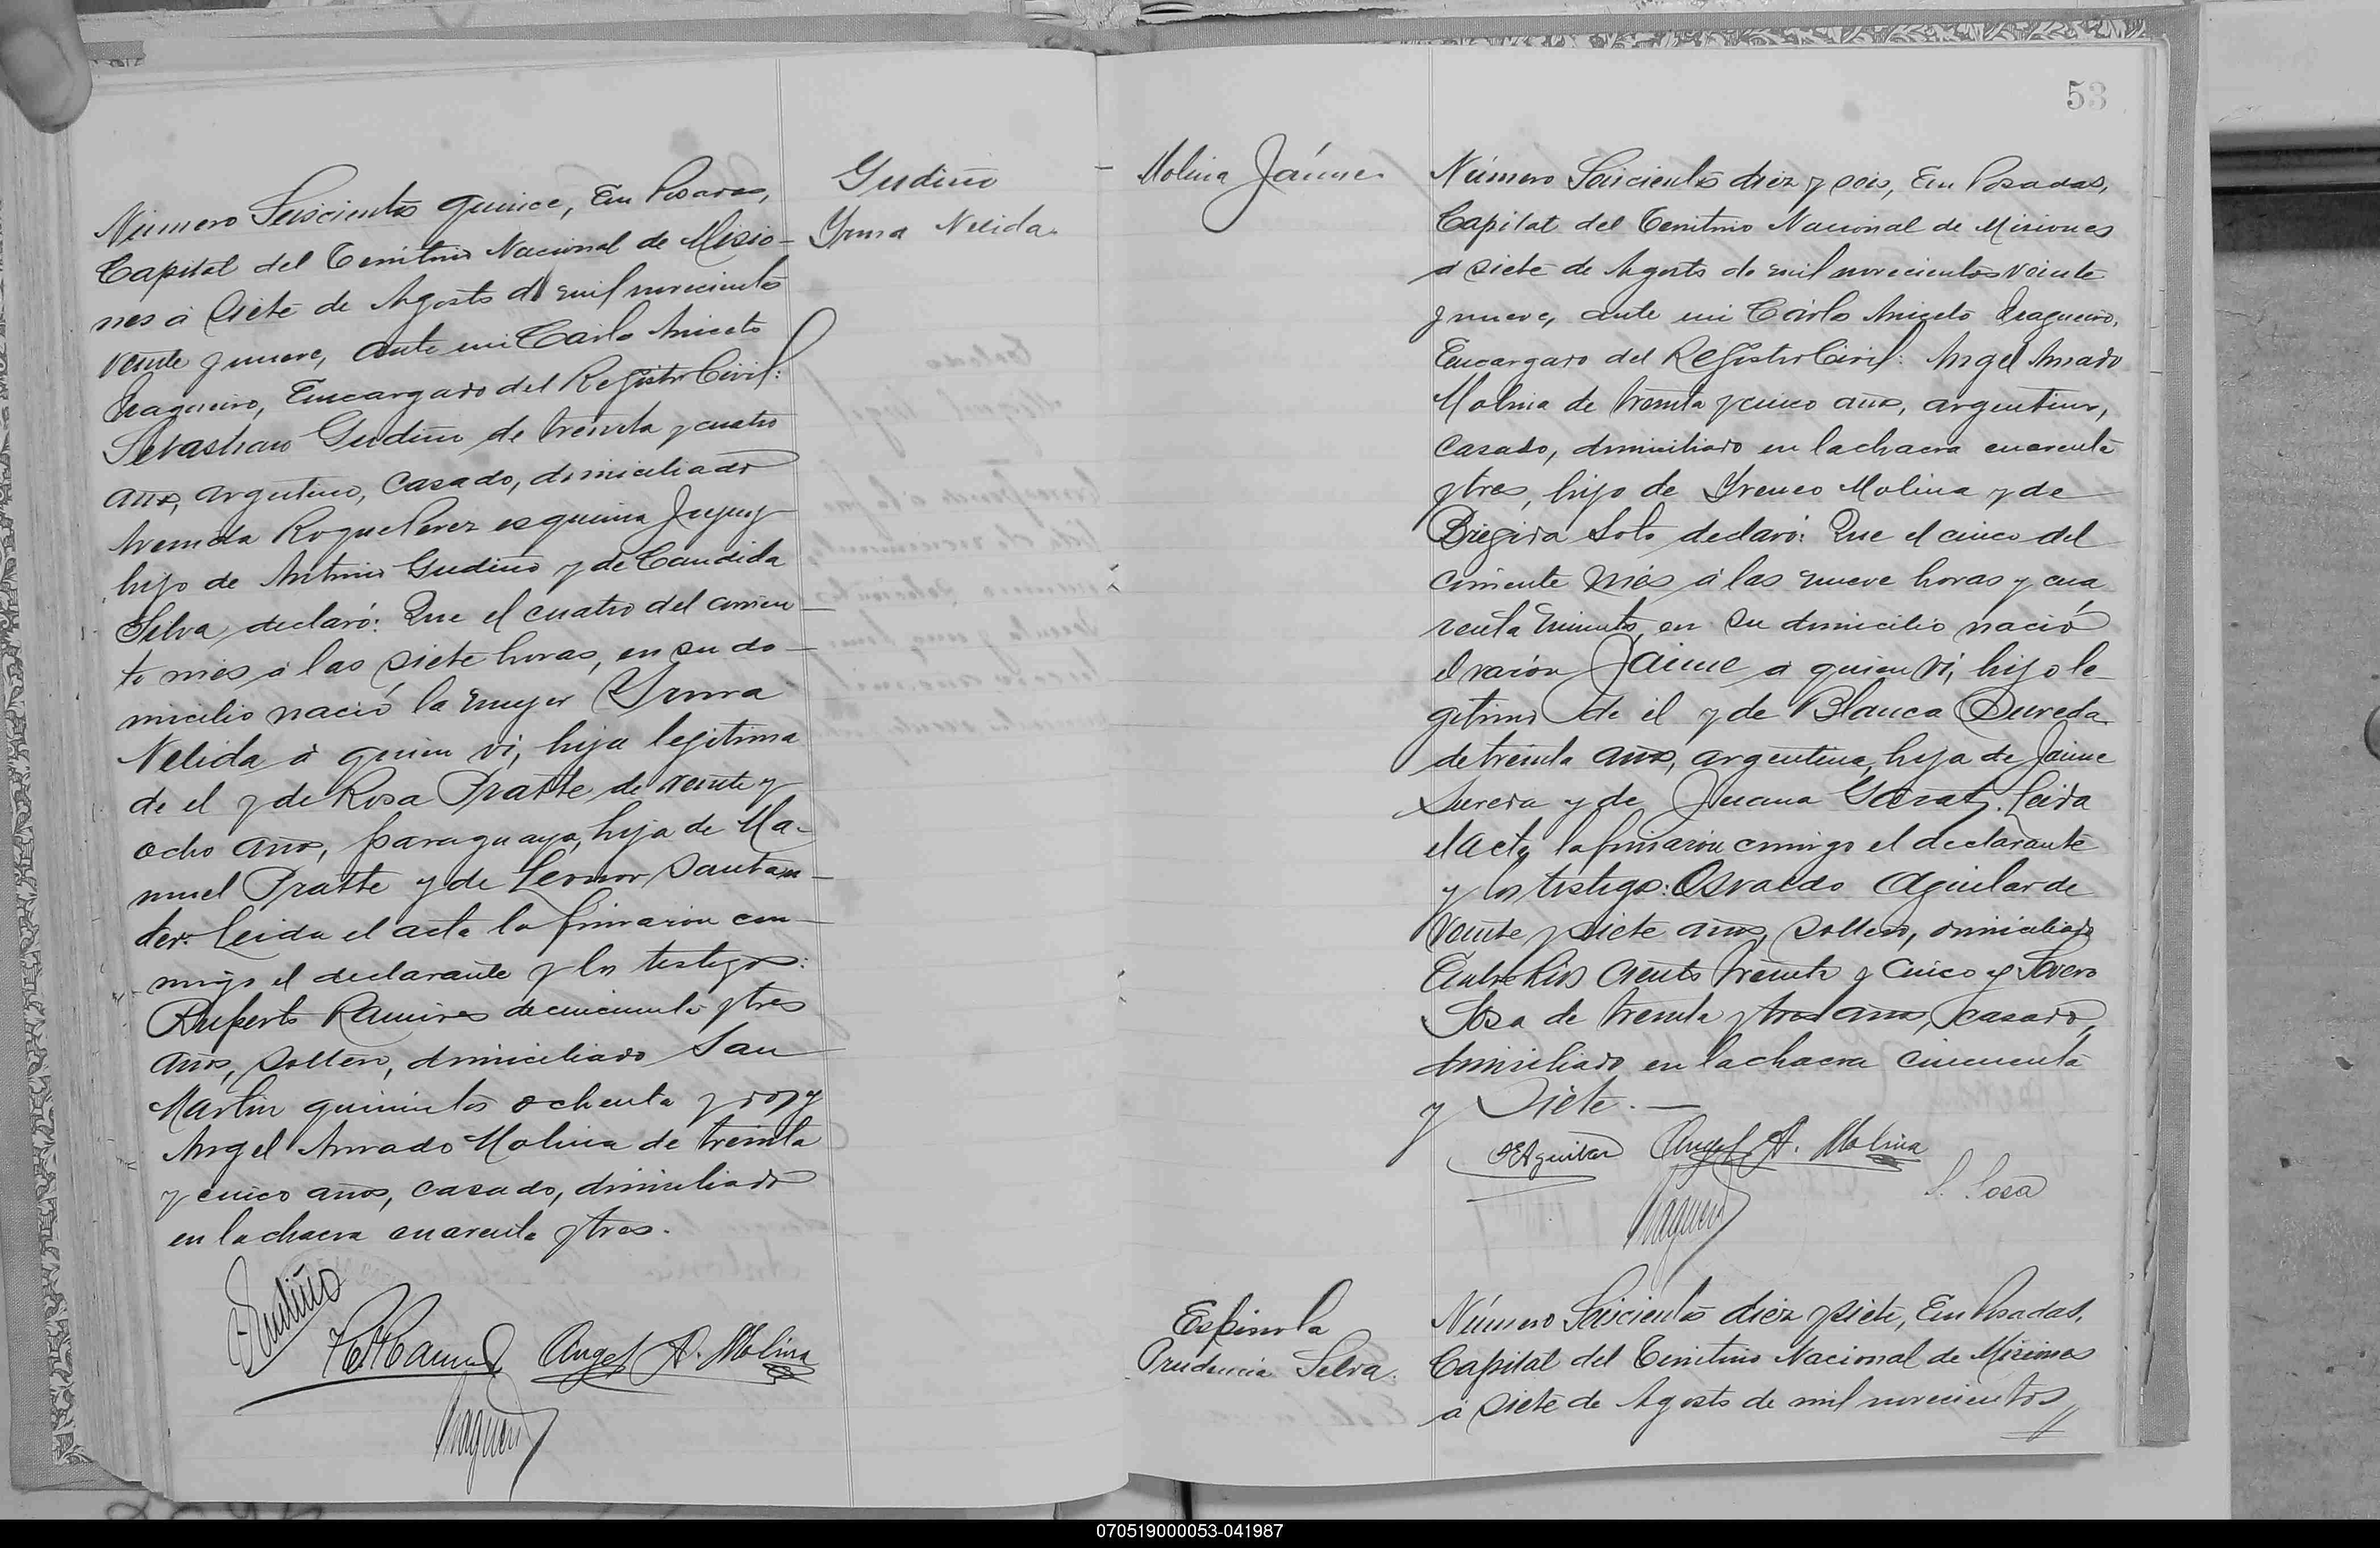 Gudiño
Yrma Nelida
Número Seiscientos quince, En Posadas,
Capital del Territorio Nacional de Misio-
nes á Siete de Agosto de mil novecientos
veinte y nueve, ante mi Carlo Aniceto
Encargado del Registro Civil:
Sebastian Gudiño de treinta y cuatro
años, argentino, casado, domiciliado
Avenida Roque Perez esquina Jujuy
hijo de Antonio Gudiño y de Candida
Silva declaró: Que el cuatro del corrien-
te mes á las siete horas, en su do-
micilio nació la mujer Yrma
Nelida á quien vi, hija legitima
de el y de Rosa Pratte de veinte y
ocho años, paraguaya, hija de Ma-
nuel Pratte y de Leonor Santan-
der. Leida el acta la firmaron con-
migo el declarante y los testigos:
Ruperto Ramires de cincuenta y tres
años, soltero, domiciliado San
Martin quinientos ochenta y dos y
Angel Amado Molina de treinta
y cinco años, casado, domiciliado
en la chacra cuarenta y tres.
Gudiño
Angel A. Molina
53
Molina Jaime
Número Seiscientos diez y seis, En Posadas,
Capital del Territorio Nacional de Misiones
á siete de Agosto de mil novecientos veinte
y nueve, ante mi Carlo Aniceto
Encargado del Registro Civil: Angel Amado
Molina de treinta y cinco años, argentino,
casado, domiciliado en la chacra cuarenta
y tres, hijo de Yreneo Molina y de
Brigida Soto declaró: Que el cinco del
corriente mes á las nueve horas y cua
renta minutos, en su domicilio nació
el varon Jaime á quien vi, hijo le-
gitimo de él y de Blanca Sureda
de treinta años, argentina, hija de Jaime
Sureda y de Juana Garat. Leida
el acta la firmaron conmigo el declarante
y los testigos: Osvaldo Aguilar de
veinte y siete años, soltero, domiciliado
Entre Rios ciento treinta y cinco y Severo
Sosa de treinta y tres años, casado,
domiciliado en la chacra cincuenta
y Siete.—
Aguilar Angel A. Molina
S. Sosa
Espinola
Prudencia Selva.
Número Seiscientos diez y siete, En Posadas,
Capital del Territorio Nacional de Misiones
á siete de Agosto de mil novecientos
070519000053-041987